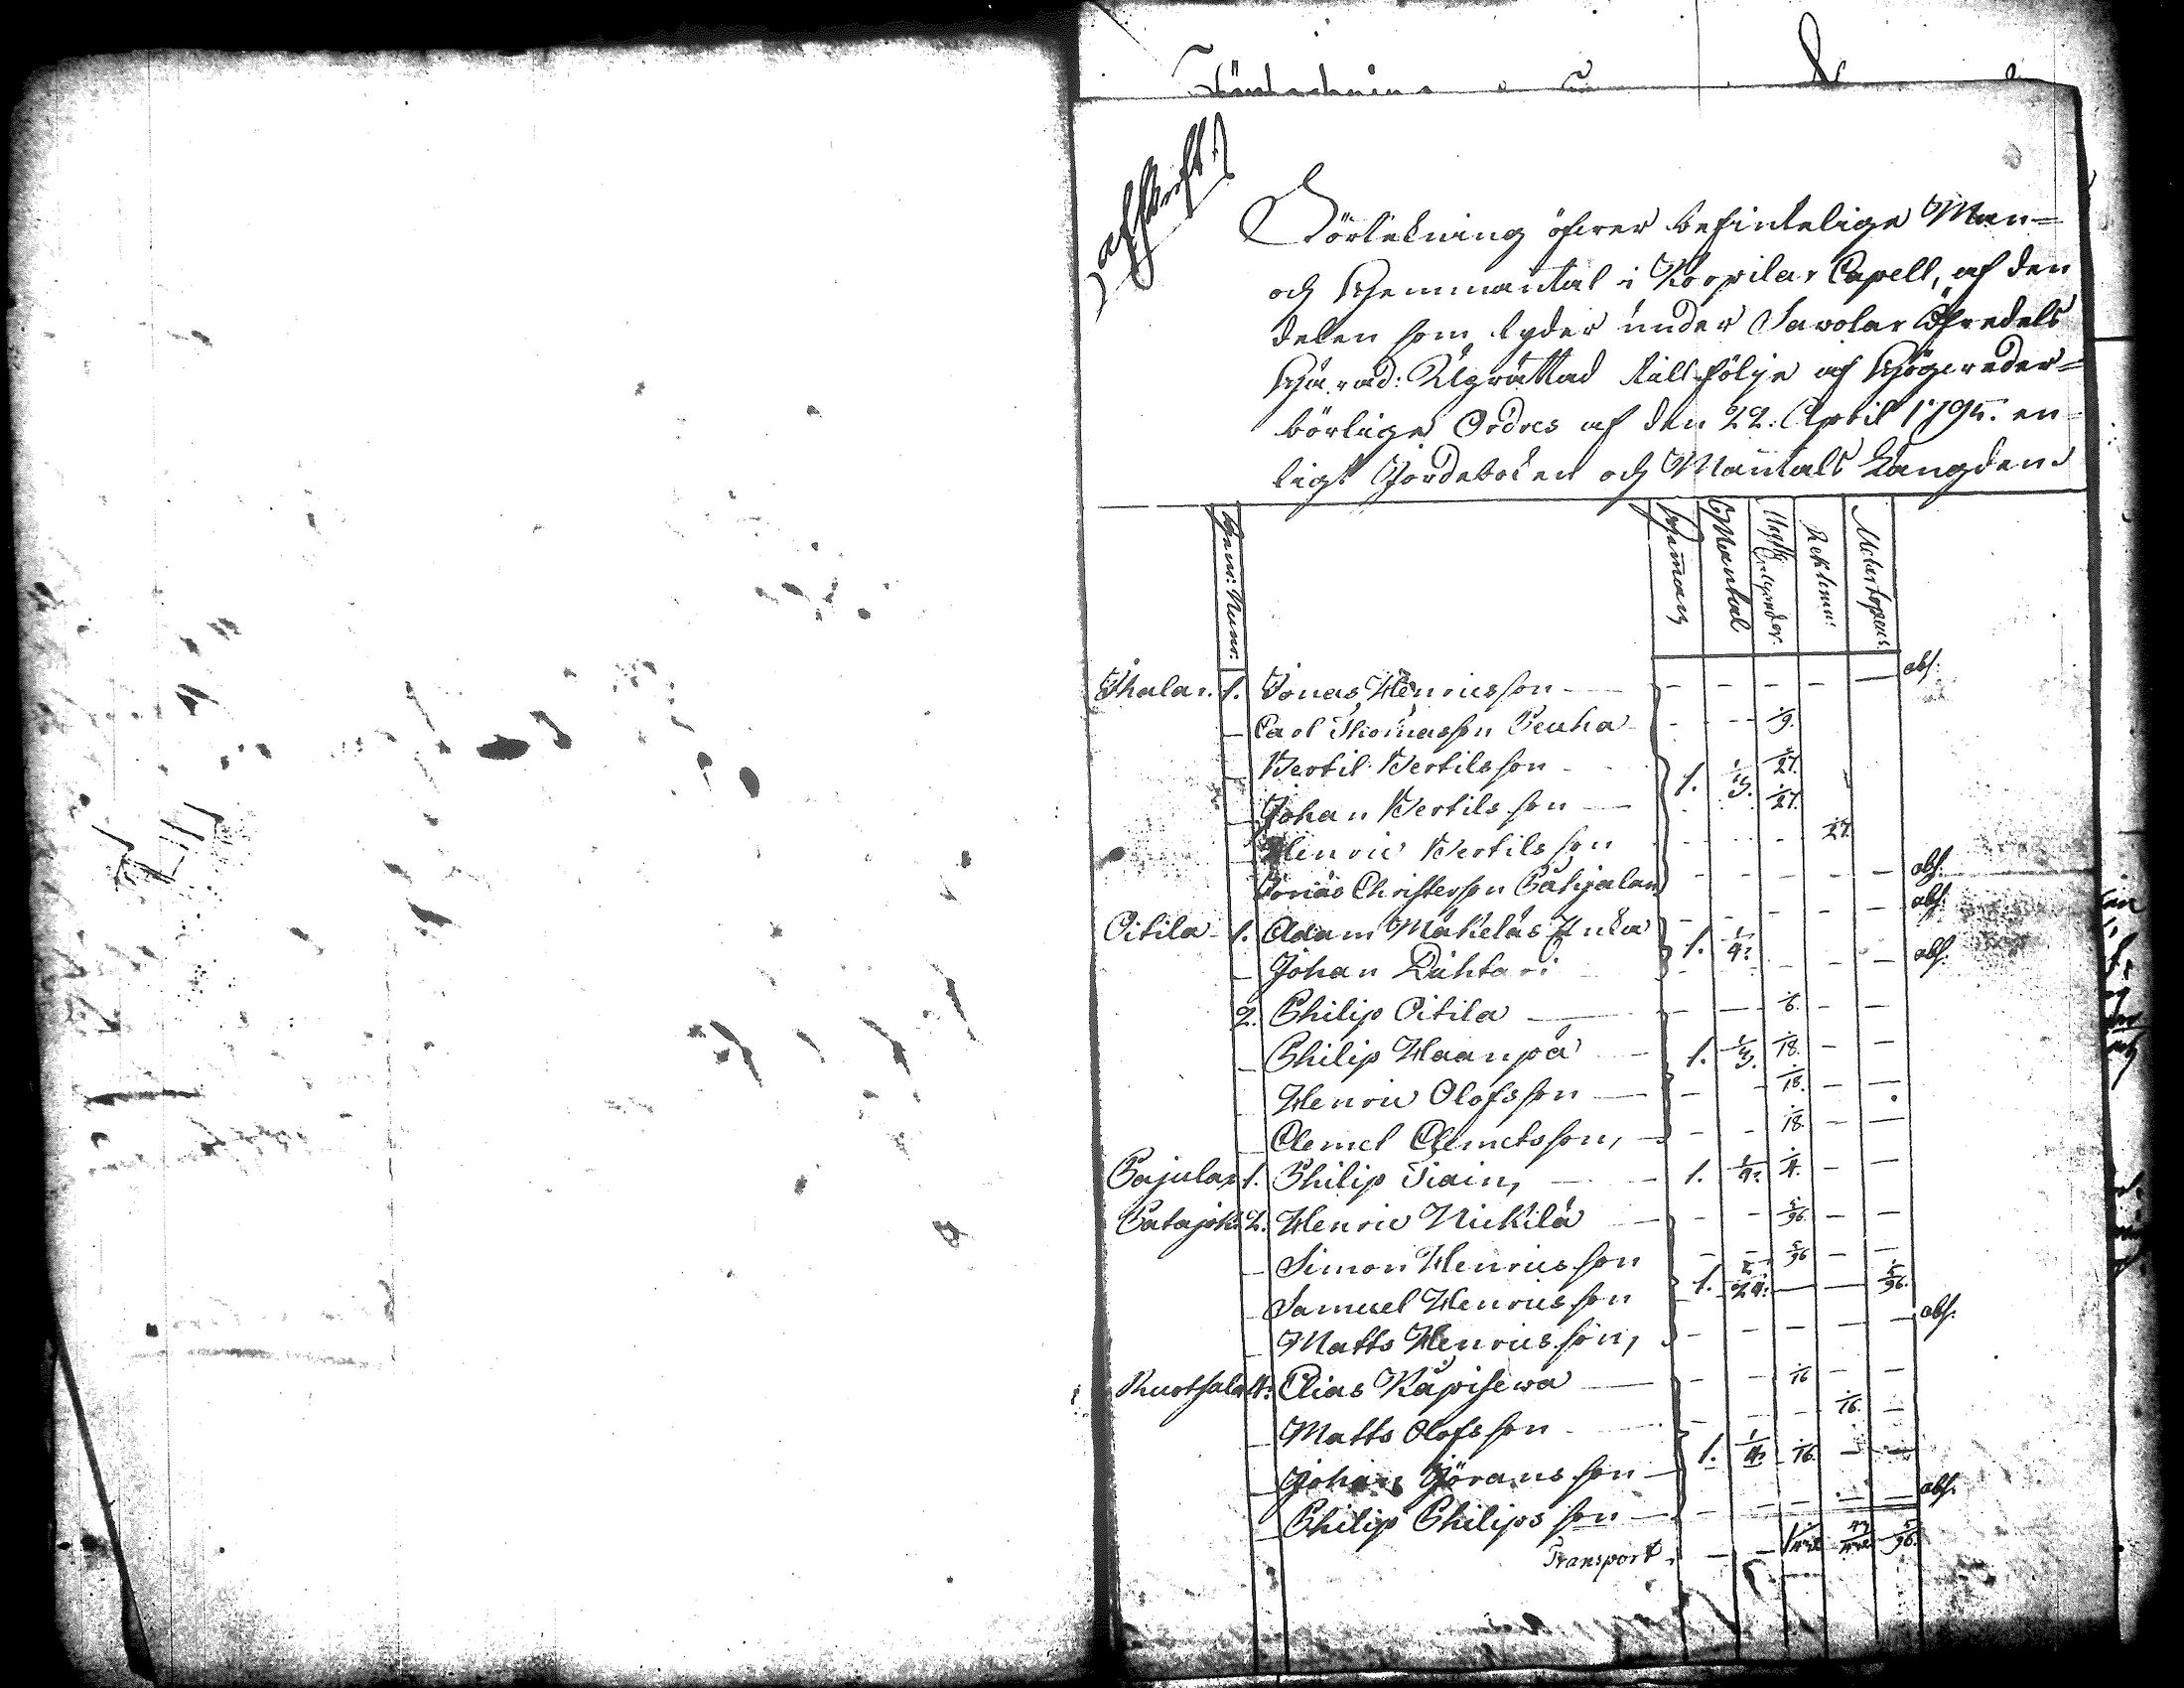 afskrift
Förtekning öfwer befintelige Man=
och Hemmantal i Korpilax Capell, af den
delen som lyder under Sawolax Öfredels
Härad: Uprättad till följe af Högweder=
börliga Ordres af den 22. April 1795. en=
ligt Jordeboken och Mantals Längden
Hem: Num: Heman Mantal
Ihalax. 1. Jonas Henricsson — — — — — abs:
— Carl Thomasson Peuha - - - 1/9.
— Bertil Bertilsson 1. 1/3. 2/27.
— Johan Bertilsson — 1/27.
— Henric Bertilsson 1/27.
Jonas Christersson Pahjalan — — — — — abs.
Oitila 1. Adam Mäkeläs Enka 1. 1/4. — — — abs.
— Johan Rähtäri — — — — — abs.
2. Philip Oitila — — — 1/6. — —
— Philip Haanpä — 1. 1/3. 1/18. — —
— Henric Olofsson — — - 1/18. — —
— Clemet Clemetsson, — - - 1/18. — —
Pajulax 1. Philip Piain, — 1. 1/4. 1/4. — —
Patajok: 2. Henric Niekilä — — — 5/96. — —
— Simon Henricsson — — 5/96 — —
— Samuel Henricsson 1. 5/24. — — 5/96.
— Matts Henricsson, — — — — — abs.
4. Elias Käpisewa — — — 1/16 — —
— Matts Olofsson — — — 1/16. —
— Johan Göransson — 1. 1/4. 1/16. — —
— Philip Philipsson — — — — — abs.
Transport — — 5/96.